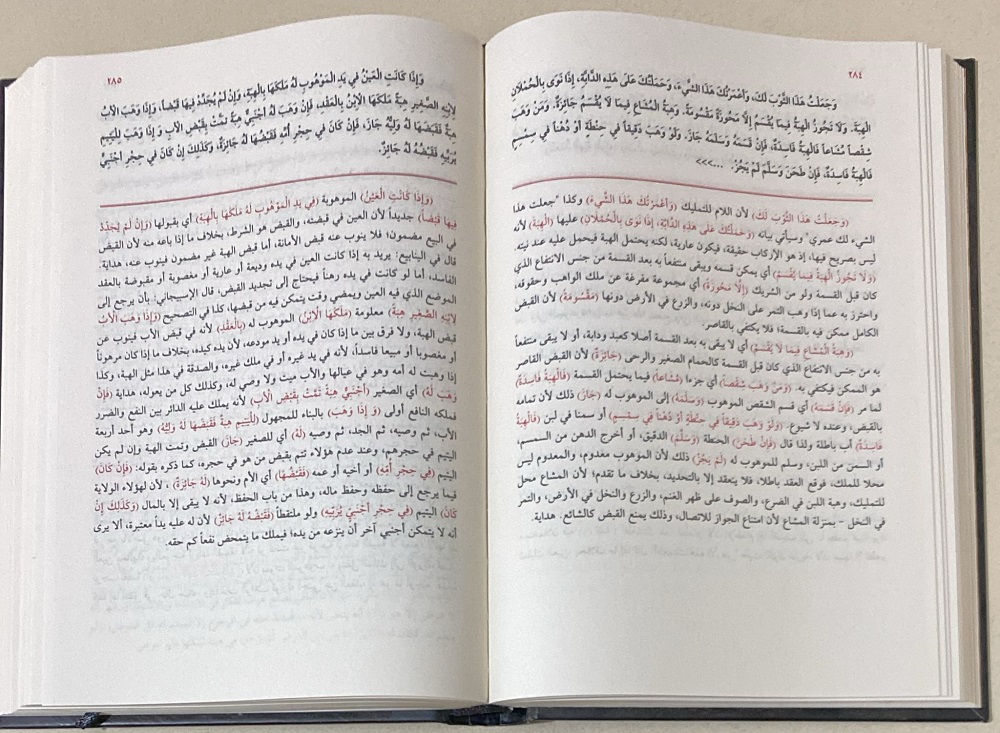 ٢٨٤
وَجَعَلْتُ هَذَا الثَّوْبَ لَكَ، وَأَعْمَرْتُكَ هَذَا الشَّيْءَ، وَحَمَلْتُكَ عَلَى هَذِهِ الدَّابَّةِ، إِذَا نَوَى بِالْحُمْلَانِ
الْهِبَةَ. وَلَا تَجُوزُ الْهِبَةُ فِيمَا يُقْسَمُ إِلَّا مَحُوزَةً مَقْسُومَةً. وَهِبَةُ الْمُشَاعِ فِيمَا لَا يُقْسَمُ جَائِزَةٌ. وَمَنْ وَهَبَ
شِقْصاً مُشَاعاً فَالْهِبَةُ فَاسِدَةٌ، فَإِنْ قَسَمَهُ وَسَلَّمَهُ جَازَ. وَلَوْ وَهَبَ دَقِيقاً فِي حِنْطَةٍ أَوْ دُهْناً فِي سِمْسِمٍ
فَالْهِبَةُ فَاسِدَةٌ، فَإِنْ طَحَنَ وَسَلَّمَ لَمْ يَجُزْ. ...>>>
(وَجَعَلْتُ هَذَا الثَّوْبَ لَكَ) لأن اللام للتمليك (وَأَعْمَرْتُكَ هَذَا الشَّيْءَ) وكذا "جعلت هذا
الشيء لك عمرى" وسيأتي بيانه (وَحَمَلْتُكَ عَلَى هَذِهِ الدَّابَّةِ، إِذَا نَوَى بِالْحُمْلَانِ) عليها (الْهِبَةَ) لأنه
ليس بصريح فيها، إذ هو الإركاب حقيقة، فيكون عارية، لكنه يحتمل الهبة فيحمل عليه عند نيته.
(وَلَا تَجُوزُ الْهِبَةُ فِيمَا يُقْسَمُ) أي يمكن قسمه ويبقى منتفعاً به بعد القسمة من جنس الانتفاع الذي
كان قبل القسمة ولو من الشريك (إِلَّا مَحُوزَةً) أي مجموعة مفرغة عن ملك الواهب وحقوقه،
واحترز به عما إذا وهب الثمر على النخل دونه، والزرع في الأرض دونها (مَقْسُومَةً) لأن القبض
الكامل ممكن فيه بالقسمة؛ فلا يكتفي بالقاصر.
(وَهِبَةُ الْمُشَاعِ فِيمَا لَا يُقْسَمُ) أي لا يبقى به بعد القسمة أصلا كعبد ودابة، أو لا يبقى منتفعاً
به من جنس الانتفاع الذي كان قبل القسمة كالحمام الصغير والرحى (جَائِزَةٌ) لأن القبض القاصر
هو الممكن فيكتفي به. (وَمَنْ وَهَبَ شِقْصاً) أي جزءا (مُشَاعاً) فيما يحتمل القسمة (فَالْهِبَةُ فَاسِدَةٌ)
لما مر (فَإِنْ قَسَمَهُ) أي قسم الشقص الموهوب (وَسَلَّمَهُ) إلى الموهوب له (جَازَ) ذلك لأن تمامه
بالقبض، وعنده لا شيوع. (وَلَوْ وَهَبَ دَقِيقاً فِي حِنْطَةٍ أَوْ دُهْناً فِي سمسمٍ) أو سمنا في لبن (فَالْهِبَةُ
فَاسِدَةٌ) أب باطلة ولذا قال (فَإِنْ طَحَنَ) الحنطة (وَسَلَّمَ) الدقيق، أو أخرج الدهن من السمسم،
أو السمن من اللبن، وسلم للموهوب له (لَمْ يَجُزْ) ذلك لأن الموهوب معدوم، والمعدوم ليس
محلا للملك، فوقع العقد باطلا، فلا ينعقد إلا بالتجديد، بخلاف ما تقدم؛ لأن المشاع محل
للتمليك، وهبة اللبن في الضرع، والصوف على ظهر الغنم، والزرع والنخل في الأرض، والتمر
في النخل – بمنزلة المشاع لأن امتناع الجواز للاتصال، وذلك يمنع القبض كالشائع. هداية.
٢٨٥
وَإِذَا كَانَتِ الْعَيْنُ فِي يَدِ الْمَوْهُوبِ لَهُ مَلَكَهَا بِالْهِبَةِ، وَإِنْ لَمْ يُجَدِّدْ فِيهَا قَبْضاً، وَإِذَا وَهَبَ الْأَبُ
لِابْنِهِ الصَّغِيرِ هِبَةً مَلَكَهَا الِابْنُ بِالْعَقْدِ، فَإِنْ وَهَبَ لَهُ أَجْنَبِيٌّ هِبَةً تَمَّتْ بِقَبْضِ الْأَبِ وَ إِذَا وَهَبَ لِلْيَتِيمِ
هِبَةً فَقَبَضَهَا لَهُ وَلِيُّهُ جَازَ، فَإِنْ كَانَ فِي حِجْرِ أُمِّهِ فَقَبْضُهَا لَهُ جَائِزَةٌ، وَكَذَلِكَ إِنْ كَانَ فِي حِجْرِ أَجْنَبِيٍّ
يُرَبِّيهِ فَقَبْضُهُ لَهُ جَائِزٌ.
(وَإِذَا كَانَتِ الْعَيْنُ) الموهوبة (فِي يَدِ الْمَوْهُوبِ لَهُ مَلَكَهَا بِالْهِبَةِ) أي بقبولها (وَإِنْ لَمْ يُجَدِّدْ
فِيهَا قَبْضاً) جديداً لأن العين في قبضته، والقبض هو الشرط، بخلاف ما إذا باعه منه لأن القبض
في البيع مضمون؛ فلا ينوب عنه قبض الأمانة، أما قبض الهبة غير مضمون فينوب عنه، هداية.
قال في الينابيع: يريد به إذا كانت العين في يده وديعة أو عارية أو مغصوبة أو مقبوضة بالعقد
الفاسد، أما لو كانت في يده رهناً فيحتاج إلى تجديد القبض، قال الإسبيجاني: بأن يرجع إلى
الموضع الذي فيه العين ويمضي وقت يتمكن فيه من قبضها، كذا في التصحيح (وَإِذَا وَهَبَ الْأَبُ
لِابْنِهِ الصَّغِيرِ هِبَةً) معلومة (مَلَكَهَا الِابْنُ) الموهوب له (بِالْعَقْدِ) لأنه في قبض الأب فينوب عن
قبض الهبة، ولا فرق بين ما إذا كان في يده أو يد مودعه، لأن يده كيده، بخلاف ما إذا كان مرهوناً
أو مغصوبا أو مبيعا فاسداً، لأنه في يد غيره أو في ملك غيره، والصدقة في هذا مثل الهبة، وكذا
إذا وهبت له أمه وهو في عيالها والأب ميت ولا وصي له، وكذلك كل من يعوله، هداية (فَإِنْ
وَهَبَ لَهُ) أي الصغير (أَجْنَبِيٌّ هِبَةً تَمَّتْ بِقَبْضِ الْأَبِ) لأنه يملك عليه الدائر بين النفع والضرر
فملكه النافع أولى (وَ إِذَا وَهَبَ) بالبناء للمجهول (لِلْيَتِيمِ هِبَةً فَقَبَضَهَا لَهُ وَلِيُّهُ) وهو أحد أربعة
الأب، ثم وصيه، ثم الجد، ثم وصيه (لَهُ) أي للصغير (جَازَ) القبض وتمت الهبة وإن لم يكن
اليتيم في حجرهم، وعند عدم هؤلاء تتم بقبض من هو في حجره، كما ذكره بقوله: (فَإِنْ كَانَ)
اليتيم (فِي حِجْرِ أُمِّهِ) أو أخيه أو عمه (فَقَبْضُهَا) أي الأم ونحوها (لَهُ جَائِزَةٌ) ، لأن لهؤلاء الولاية
فيما يرجع إلى حفظه وحفظ ماله، وهذا من باب الحفظ، لأنه لا يبقى إلا بالمال (وَكَذَلِكَ إِنْ
كَانَ) اليتيم (فِي حِجْرِ أَجْنَبِيٍّ يُرَبِّيهِ) ولو ملتقطاً (فَقَبْضُهُ لَهُ جَائِزٌ) لأن له عليه يداً معتبرة، ألا يرى
أنه لا يتمكن أجنبي آخر أن ينزعه من يده؛ فيملك ما يتمحض نفعاً كم حقه.